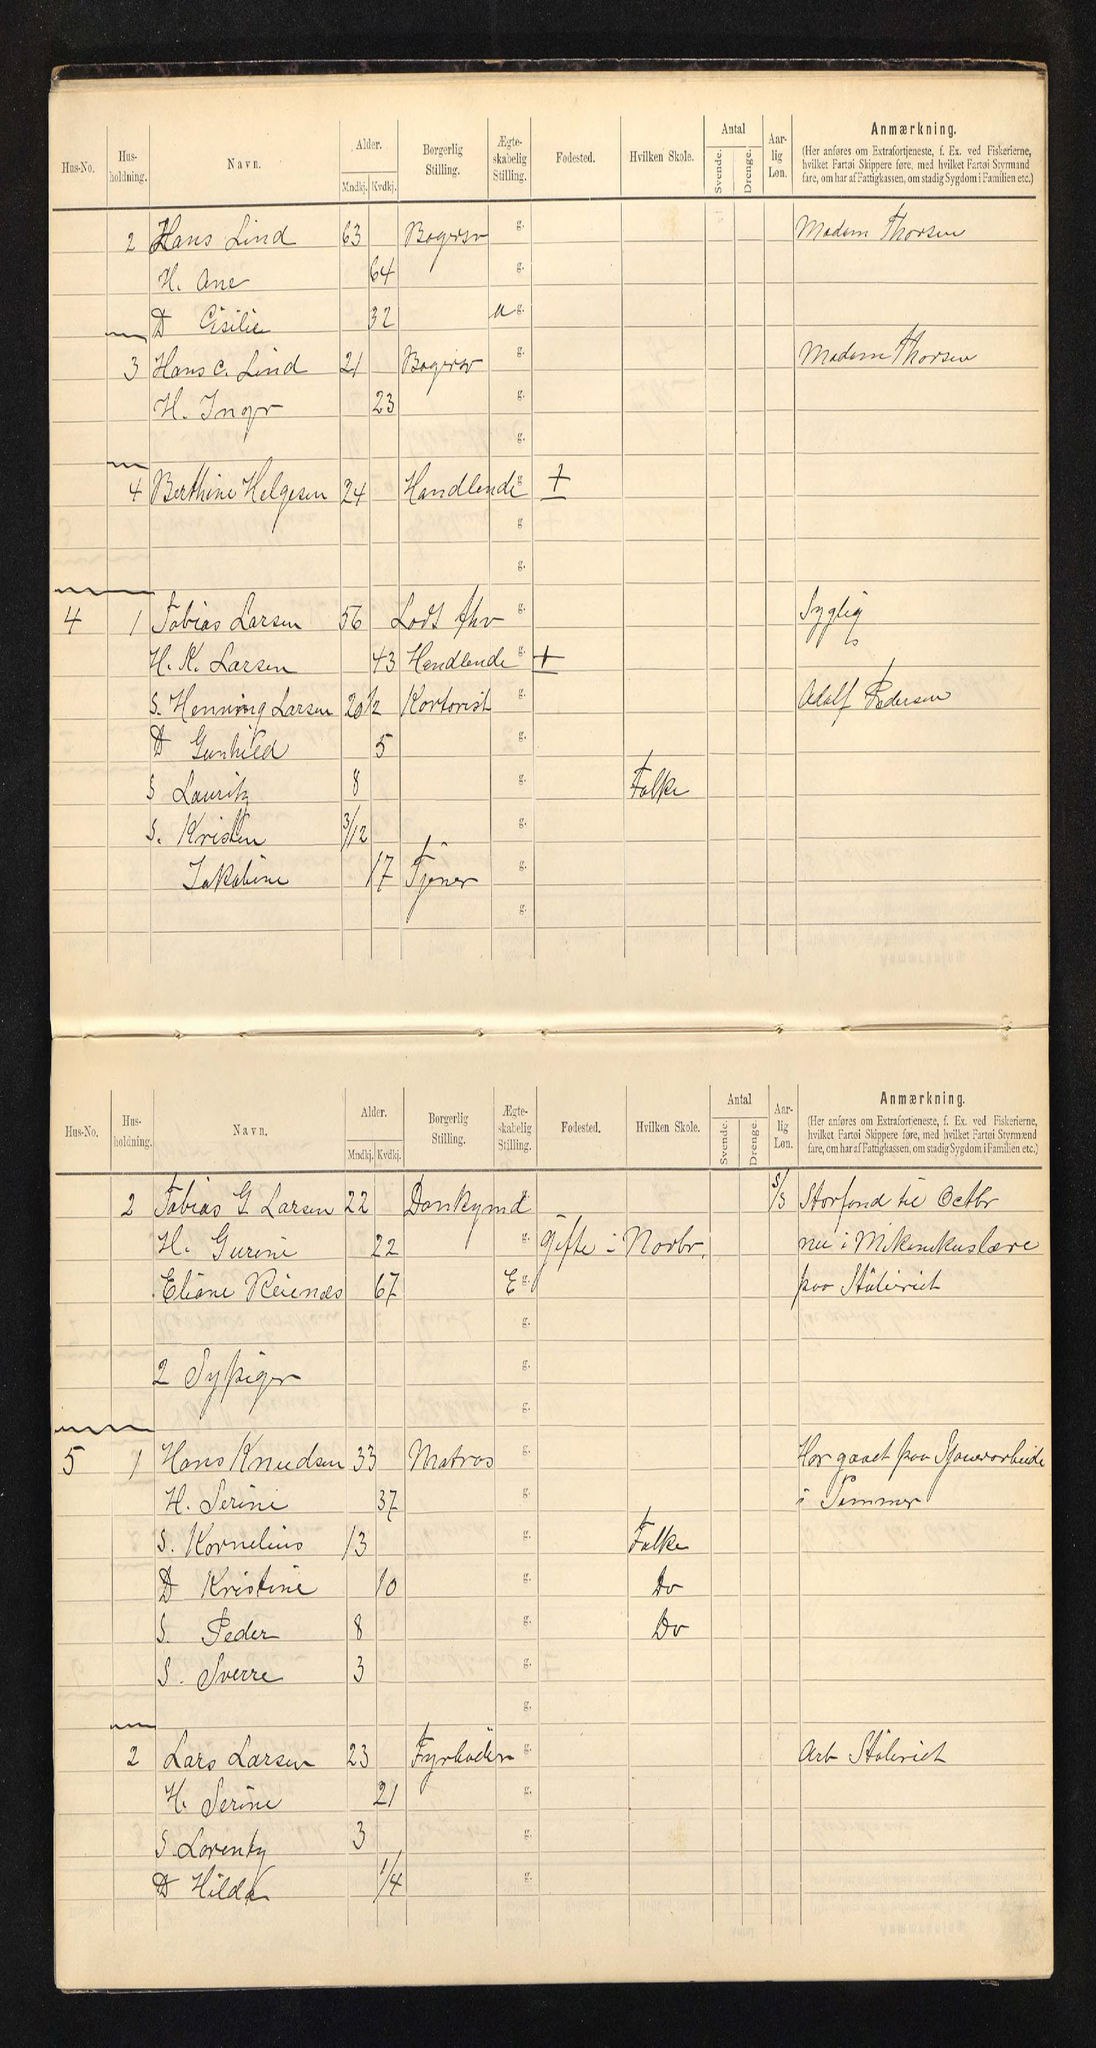 Hus-No. Hus-holdning. Navn. Alder. Mndkj. Kvdkj. Borgerlig Stilling. Ægte-skabelig Stilling. Fødested. Hvilken Skole. Antal Svende. Drenge. Aar-lig Løn. Anmærkning.
(Her anføres om Extrafortjeneste, f. Ex. ved Fiskerierne,
hvilket Fartøi Skippere føre, med hvilket Fartøi Styrmænd
fare, om har af Fattigkassen, om stadig Sygdom i Familien etc.)
2 Hans Lind 63 Bagersv g. Madam Thorsen
H. Ane 64 g.
D Cisilie 32 u g.
3 Hans C. Lind 21 Bagersv g. Madam Thorsen
H. Inger 23 g.
g.
4 Berthine Helgesen 24 Handlende g. +
g.
g.
4 1 Tobias Larsen 56 Lods fhv g. Syglig
H. K. Larsen 43 Handlende g. +
S. Henning Larsen 20 1/2 Kontorist g. Adolf Pedersen
D Gunhild 5 g.
S Lauritz 8 g. Folke
S. Kristen 3/12 g.
Jakobine 17 Tjener g.
g.
Hus-No. Hus-holdning. Navn. Alder. Mndkj. Kvdkj. Borgerlig Stilling. Ægte-skabelig Stilling. Fødested. Hvilken Skole. Antal Svende. Drenge. Aar-lig Løn. Anmærkning.
(Her anføres om Extrafortjeneste, f. Ex. ved Fiskerierne,
hvilket Fartøi Skippere føre, med hvilket Fartøi Styrmænd
fare, om har af Fattigkassen, om stadig Sygdom i Familien etc.)
2 Tobias G. Larsen 22 Donkymd Storfond til Octbr
H. Gurine 22 g. Gifte i Novbr. nu i Mekenikuslære
Eliane Reienæs 67 E g. paa Støberiet
g.
2 Sypiger g.
g.
5 1 Hans Knudsen 33 Matros g. Har gaaet paa Sjauerarbeide
H. Serine 37 g. i Sommer
S. Kornelius 13 g. Folke
D Kristine 10 g. Do
S. Peder 8 g. Do
S. Sverre 3 g.
g.
2 Lars Larsen 23 Fyrbøder g. Arb Støberiet
H. Serine 21 g.
S. Lorentz 3 g.
D Hilda 1/4 g.